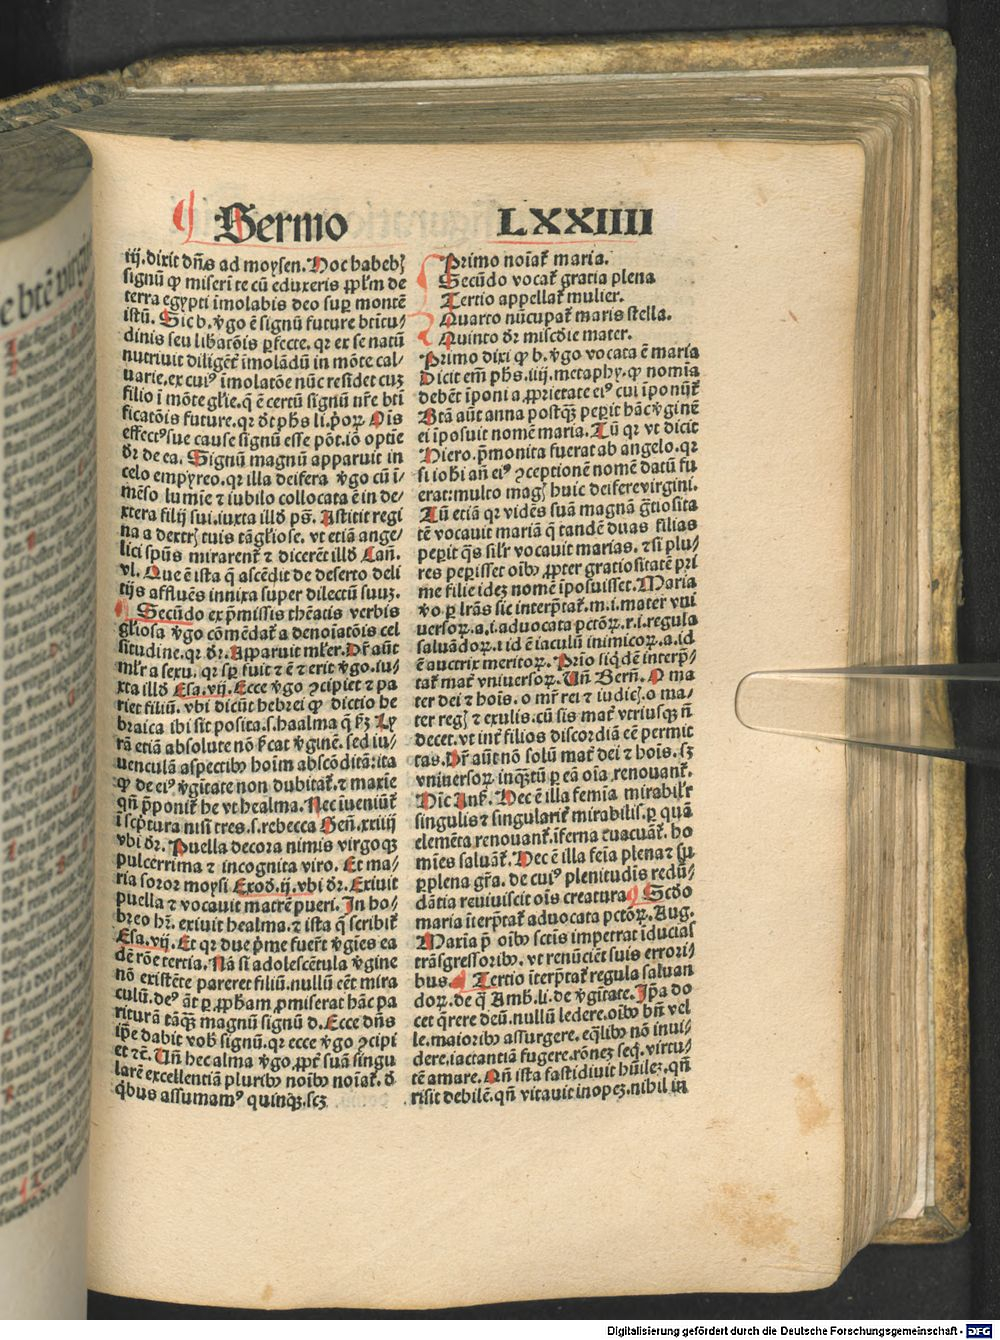 Sermo LXXIIII
iij. dixit dn̄s ad moysen. Hoc habebꝭ
signū ꝙ miserī te cū eduxeris ꝓpl̄m de
terra egypti īmolabis deo suꝑ montē
istū. Sic b. v̄go ē signū future btītu⸗
dinis seu libatōis ꝑfecte. qꝛ ex se natū
nutriuit diligēt᷑ īmolādū in mōte cal⸗
uarie. ex cuiꝰ īmolatōe nūc residet cuꝫ
filio ī mōte gl̄ie. q̄ ē certū signū nr̄e bti
ficatōis future. qꝛ d̄t ph̄s li. p̄oꝝ. Oīs
effectꝰ sue cause signū esse pōt. iō optīe
dr̄ de ea. Signū magnū apparuit in
celo empyreo. qꝛ illa deifera v̄go cū ī⸗
mēso lumīe ⁊ iubilo collocata ē in de⸗
xtera filij sui. iuxta illd̄ ps̄. Astitit regi
na a dextrꝭ tuis tāgl̄iose. vt etiā ange⸗
lici spūs mirarent᷑ ⁊ dicerēt illd̄ Cañ.
vī. Que ē ista q̄ ascēdit de deserto deli
tijs affluēs innixa super dilectū suuꝫ.
Secūdo ex p̄missis thēatis verbis
gl̄iosa v̄go cōmēdat᷑ a denoīatōis cel
situdine. qꝛ dr̄. Apparuit ml̄er. Dr̄ aūt
ml̄r a sexu. qꝛ sꝑ fuit ⁊ ē ⁊ erit v̄go. iu⸗
xta illd̄ Esa. vij. Ecce v̄go ꝯcipiet ⁊ pa
riet filiū. vbi dicūt hebrei ꝙ dictio he
braica ibi sit posita. s. haalma q̄ ẜꝫ Ly
rā etiā absolute nō ẜcat v̄ginē. sed iu⸗
uenculā aspectibꝰ hoīm abscōditā: ita
ꝙ de eiꝰ v̄gītate non dubitat᷑. ⁊ maxīe
qn̄ p̄ponit᷑ he vt healma. Nec iueniūt᷑
ī sc̄ptura nisi tres. s. rebecca Geñ. xxiiij
vbi dr̄. Puella decora nimis virgoqꝫ
pulcerrima ⁊ incognita viro. Et ma⸗
ria soror moysi Exod̄. ij. vbi dr̄. Exiuit
puella ⁊ vocauit matrē pueri. In he⸗
breo hr̄. exiuit healma. ⁊ ista q̄ scribit᷑
Esa. vij. Et qꝛ due p̄me fuer̄t v̄gīes ea
dē rōe tertia. Nā si adolescētula v̄gine
nō existēte pareret filiū. nullū eēt mira
culū. deꝰ āt ꝑ ꝓph̄am ꝓmiserat hāc pa
riturā tāqꝫ magnū signū d. Ecce dn̄s
ip̄e dabit vob̄ signū. qꝛ ecce v̄go ꝯcipi
et ⁊c̄. Uñ hec alma v̄go ꝓpt᷑ suā singu
larē excellentiā pluribꝰ noībꝰ noīat᷑. d̄
q̄bus assumamꝰ quinqꝫ. scꝫ
Primo noīat᷑ maria.
Secūdo vocat᷑ gratia plena
Tertio appellat᷑ mulier.
Quarto nūcupat᷑ maris stella.
Quinto dr̄ mīscd̄ie mater.
Primo dixi ꝙ b. v̄go vocata ē maria
Dicit em̄ ph̄s. iiij. metaphy. ꝙ nomīa
debēt īponi a ꝓprietate eiꝰ cui īponūt᷑
Btā aūt anna postqꝫ peꝑit hāc v̄ginē
ei īposuit nomē maria. Tū qꝛ vt dicit
Hiero. p̄monita fuerat ab angelo. qꝛ
si iohi añ eiꝰ ꝯceptionē nomē datū fu
erat: multo magꝭ huic deifere virgini.
Tū etiā qꝛ vidēs suā magnā gr̄tiosita
tē vocauit mariā q̄ tandē duas filias
peꝑit q̄s sil̄r vocauit marias. ⁊ si plu⸗
res peꝑisset oībꝰ ꝓpter gratiositatē pri
me filie idez nomē īposuisset. Maria
v̄o ꝑ lr̄as sic interp̄tat᷑. m. i. mater vni
uersoꝝ. a. i. aduocata pctōꝝ. r. i. regula
saluādoꝝ. i id ē iaculū inimicoꝝ. a. id
ē auctrix meritoꝝ. Prīo siqͥdē interp̄⸗
tat᷑ mat᷑ vniuersoꝝ. Uñ Berñ. O ma
ter dei ⁊ hoīs. o mr̄ rei ⁊ iudicꝭ. o ma⸗
ter regꝭ ⁊ exulis. cū sis mat᷑ vtriusqꝫ ñ
decet. vt int᷑ filios discordiā eē permit
tas. Dr̄ aūt nō solū mat᷑ dei ⁊ hoīs. sꝫ
vniuersoꝝ. inqꝫtū ꝑ eā oīa renouant᷑.
Hīc Ans̄. Hec ē illa femīa mirabil̓r
singulis ⁊ singularit᷑ mirabilis. ꝑ quā
elemēta renouant᷑. īferna euacuāt᷑. ho
mīes saluāt᷑. Hec ē illa feīa plena ⁊ su
ꝑplena gr̄a. de cuiꝰ plenitudīs redū⸗
dātia reuiuiscit oīs creatura. Scd̄o
maria īterp̄tat᷑ aduocata pctōꝝ. Aug.
Maria p̄ oībꝰ scīs impetrat īducias
trāsgressoribꝰ. vt renūciēt suis errori⸗
bus. Tertio īterp̄tat᷑ regula saluan
doꝝ. de q̄ Amb̄. li. de v̄gītate. Ip̄a do
cet q̄rere deū. nullū ledere. oībꝰ bn̄ vel
le. maioribꝰ assurgere. eq̄libꝰ nō inui⸗
dere. iactantiā fugere. rōnez seq̄. virtu⸗
tē amare. Qn̄ ista fastidiuit hūilez. qn̄
risit debilē. qn̄ vitauit inopez. nihil in
Digitalisierung gefördert durch die Deutsche Forschungsgemeinschaft - DFG